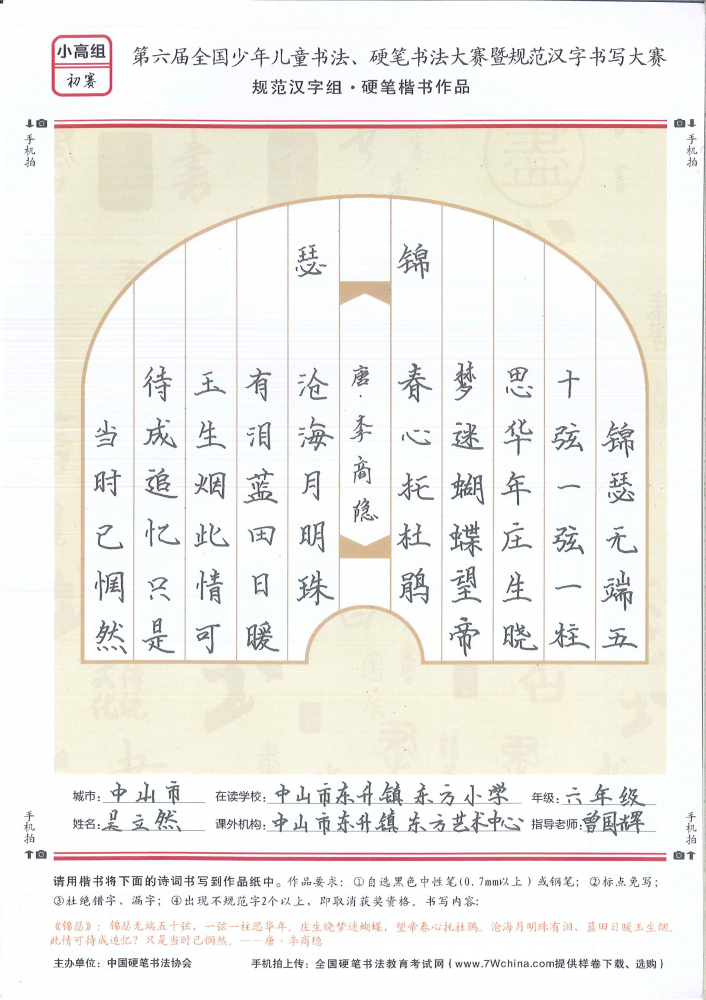 小高组
初赛
第六届全国少年儿童书法、硬笔书法大赛暨规范汉字书写大赛
规范汉字组·硬笔楷书作品
手机拍
手机拍
锦瑟
锦瑟无端五
十弦一弦一柱
思华年庄生晓
梦迷蝴蝶望帝
春心托杜鹃
唐·李商隐
沧海月明珠
有泪蓝田日暖
玉生烟此情可
待成追忆只是
当时已惘然
手机拍
手机拍
城市：中山市 在读学校：中山市东升镇东方小学 年级：六年级
姓名：吴立然 课外机构：中山市东升镇东方艺术中心 指导老师：曾国辉
请用楷书将下面的诗词书写到作品纸中。作品要求：①自选黑色中性笔(0.7mm以上)或钢笔；②标点免写；
③杜绝错字、漏字；④出现不规范字2个以上，即取消获奖资格。书写内容：
《锦瑟》：锦瑟无端五十弦，一弦一柱思华年。庄生晓梦迷蝴蝶，望帝春心托杜鹃。沧海月明珠有泪，蓝田日暖玉生烟。
此情可待成追忆？只是当时已惘然。——唐·李商隐
主办单位：中国硬笔书法协会 手机拍上传：全国硬笔书法教育考试网(www.7Wchina.com提供样卷下载、选购)